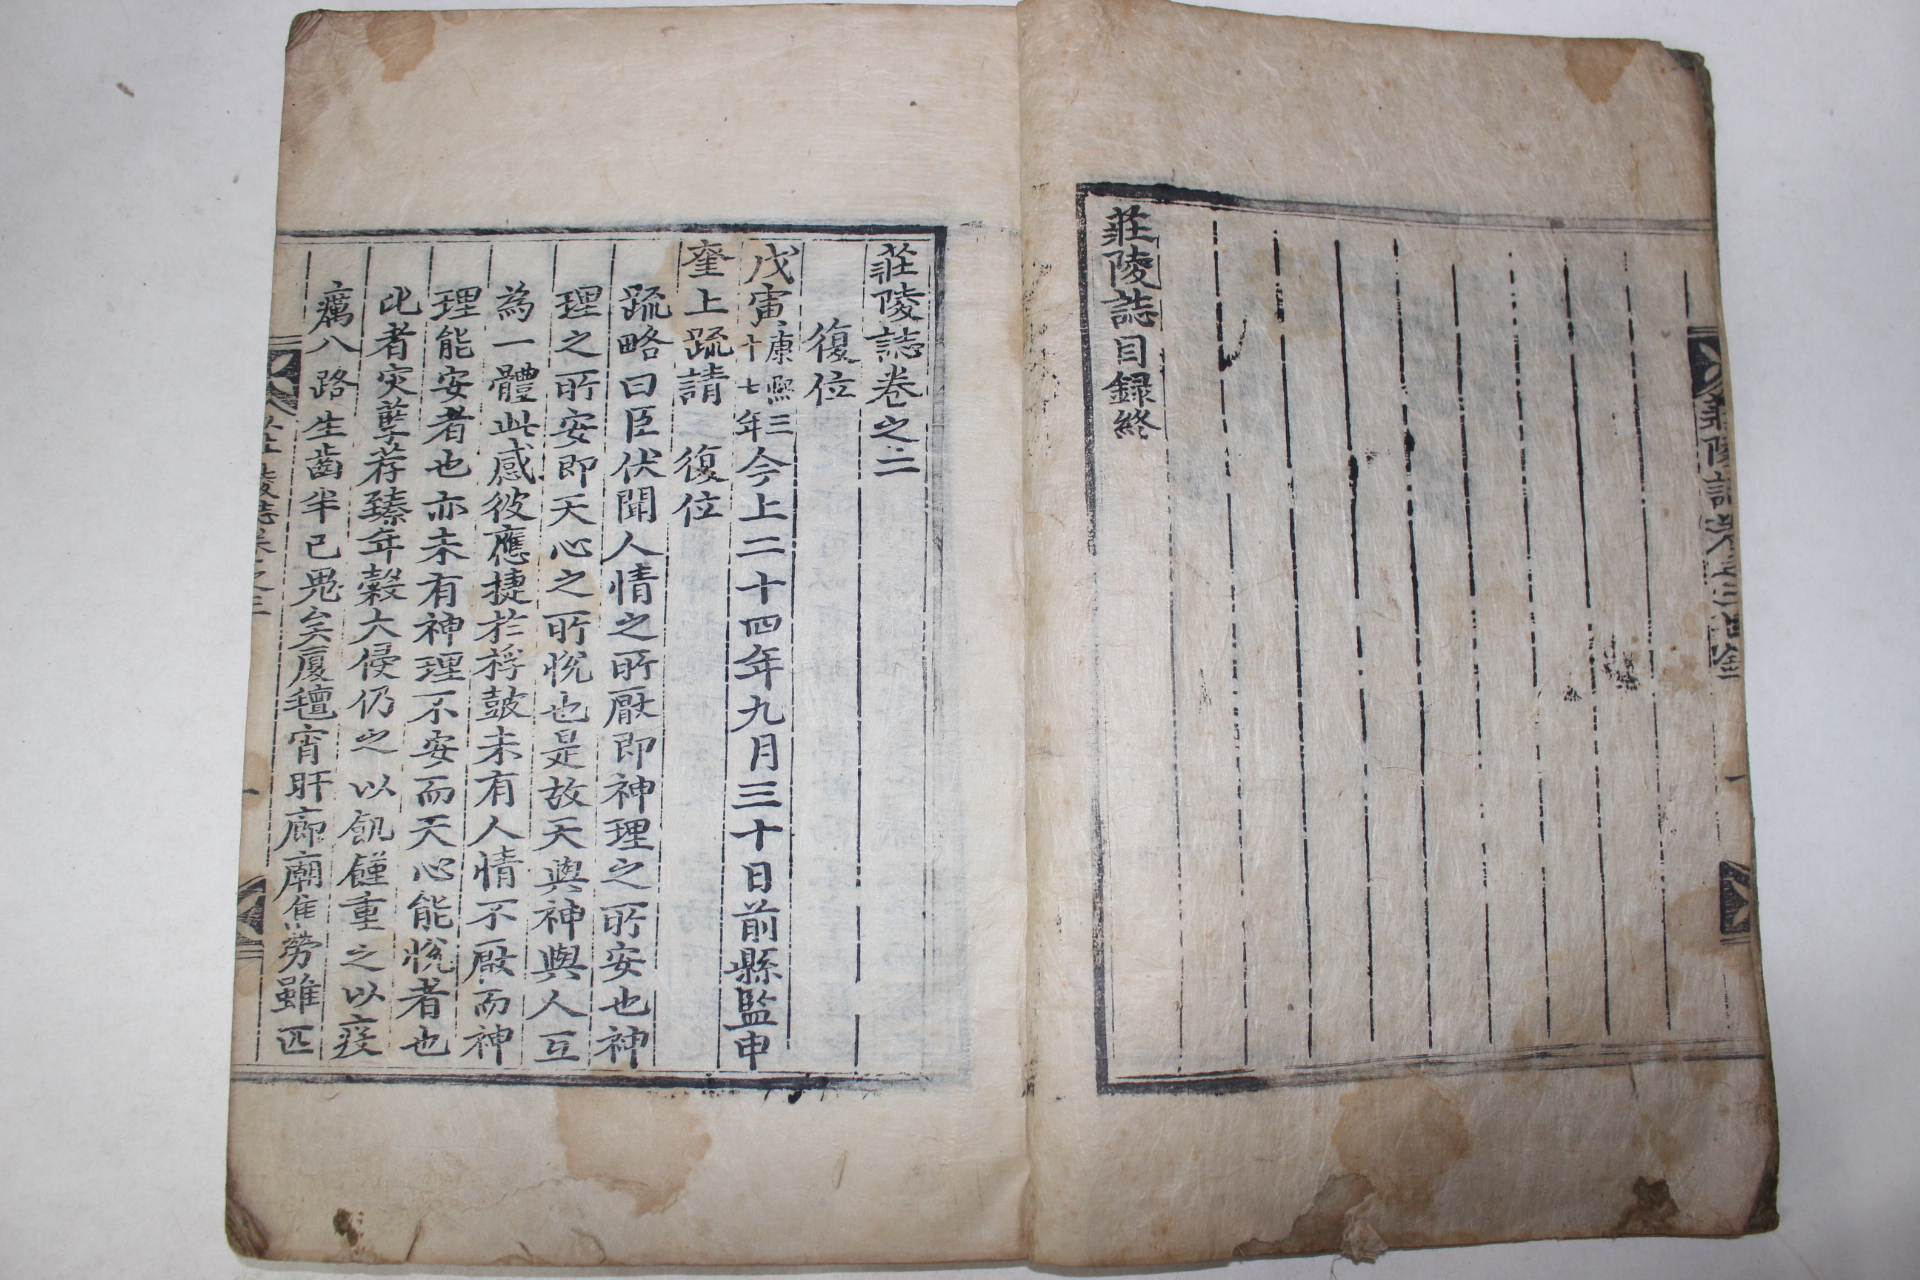 莊陵誌目録終
莊陵誌卷之二
復位
戊寅康熙三十七年今上二十四年九月三十日前縣監申
奎上疏請 復位
疏略曰臣伏聞人情之所厭即神理之所安也神
理之所安即天心之所悅也是故天與神與人互
為一體此感彼應捷於桴鼓未有人情不厭而神
理能安者也亦未有神理不安而天心能悅者也
比者灾孽荐臻年穀大侵仍之以飢饉重之以疫
癘八路生齒半已鬼矣厦氊宵旰廊廟焦勞雖匹